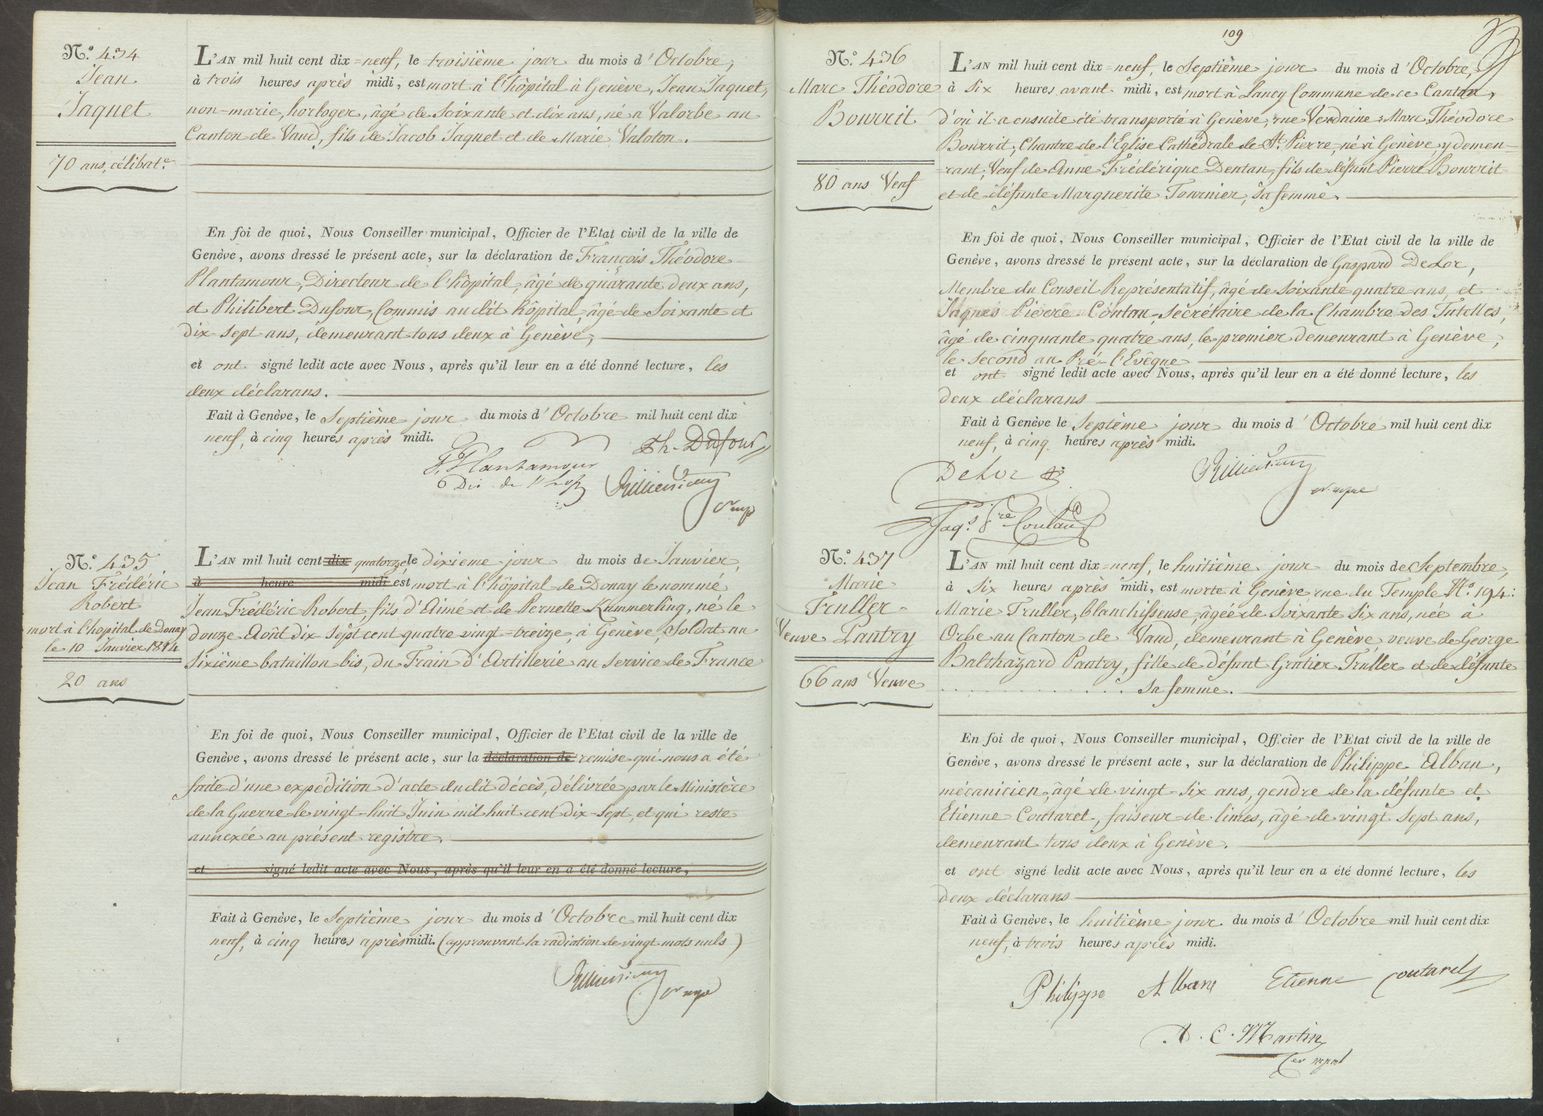 N.o 434
Jean
Jaquet
70 ans, célibat.e
L'AN mil huit cent dix-neuf, le troisième jour du mois d'Octobre,
à trois heures après midi, est mort à l'hôpital à Genève, Jean Jaquet,
non-marié, horloger, âgé de soixante et dix ans, né à Valorbe au
Canton de Vaud, fils de Jacob Jaquet et de Marie Valoton.
En foi de quoi, Nous Conseiller municipal, Officier de l'Etat civil de la ville de
Genève, avons dressé le présent acte, sur la déclaration de François Théodore
Plantamour, Directeur de l'hôpital, âgé de quarante deux ans,
et Philibert Dufour, Commis audit hôpital, âgé de Soixante et
dix sept ans, demeurant tous deux à Genève,
et ont signé ledit acte avec Nous, après qu'il leur en a été donné lecture, les
deux déclarans.
Fait à Genève, le Septième jour du mois d'Octobre mil huit cent dix
neuf, à cinq heures après midi.
Ph. Dufour
F. T. Plantamour
N.o 435
Jean Frédéric
Robert
mort à l'hopital de Douay
le 10 Janvier 1814
20 ans
L'AN mil huit cent dix quatorze le dixieme jour du mois de Janvier,
à heure midi est mort à l'hôpital de Douay le nommé
Jean Frédéric Robert, fils d'Aimé et de Pernette Kümmerling, né le
douze Août dix sept cent quatre vingt-treize, à Genève, Soldat au
Sixième bataillon bis, du Train d'Artillerie au service de France
En foi de quoi, Nous Conseiller municipal, Officier de l'Etat civil de la ville de
Genève, avons dressé le présent acte, sur la déclaration de remise qui nous a été
faite d'une expédition d'acte du dit décès, délivrée par le Ministère
de la Guerre le vingt-huit Juin mil huit cent dix-sept, et qui reste
annexée au présent registre.
et signé ledit acte avec Nous, après qu'il leur en a été donné lecture,
Fait à Genève, le Septième jour du mois d'Octobre mil huit cent dix
neuf, à cinq heures après midi. (approuvant la radiation de vingt mots nuls)
109
N.o 436
Marc Théodore
Bourrit
80 ans Veuf
L'AN mil huit cent dix-neuf, le Septième jour du mois d'Octobre,
à Six heures avant midi, est mort à Lancy Commune de ce Canton,
d'où il a ensuite été transporté à Genève, rue Verdaine, Marc Théodore
Bourrit, Chantre de l'Eglise Cathédrale de St. Pierre, né à Genève, y demeu-
rant, Veuf de Anne Frédérique Dentan, fils de défunt Pierre Bourrit
et de défunte Marguerite Tournier, sa femme.
En foi de quoi, Nous Conseiller municipal, Officier de l'Etat civil de la ville de
Genève, avons dressé le présent acte, sur la déclaration de Gaspard DeLor,
Membre du Conseil Représentatif, âgé de soixante quatre ans, et
Jaques Pierre Coutau, Sécrétaire de la Chambre des Tutelles,
âgé de cinquante quatre ans, le premier demeurant à Genève,
le Second au Pré-l'Evêque
et ont signé ledit acte avec Nous, après qu'il leur en a été donné lecture, les
deux déclarans
Fait à Genève le Septème jour du mois d'Octobre mil huit cent dix
neuf, à cinq heures après midi.
DeLor
Jaq.s P.re Coutau
N.o 437
Marie
Truller
Veuve Pantry
66 ans Veuve
L'AN mil huit cent dix-neuf, le huitième jour du mois de Septembre,
à Six heures après midi, est morte à Genève rue du Temple N.o 194:
Marie Truller, blanchisseuse, âgée de Soixante Six ans, née à
Orbe au Canton de Vaud, demeurant à Genève veuve de George
Balthazard Pantry, fille de défunt Gratien Truller et de défunte
. . . . . . . . . . . . . . . sa femme.
En foi de quoi, Nous Conseiller municipal, Officier de l'Etat civil de la ville de
Genève, avons dressé le présent acte, sur la déclaration de Philippe Alban,
mécanicien, âgé de vingt-Six ans, gendre de la défunte et
Etienne Coutaret, faiseur de limes, âgé de vingt sept ans,
demeurant tous deux à Genève.
et ont signé ledit acte avec Nous, après qu'il leur en a été donné lecture, les
deux déclarans
Fait à Genève, le huitième jour du mois d'Octobre mil huit cent dix
neuf, à trois heures après midi.
Philippe Alban Etienne Coutaret
A. C. Martin